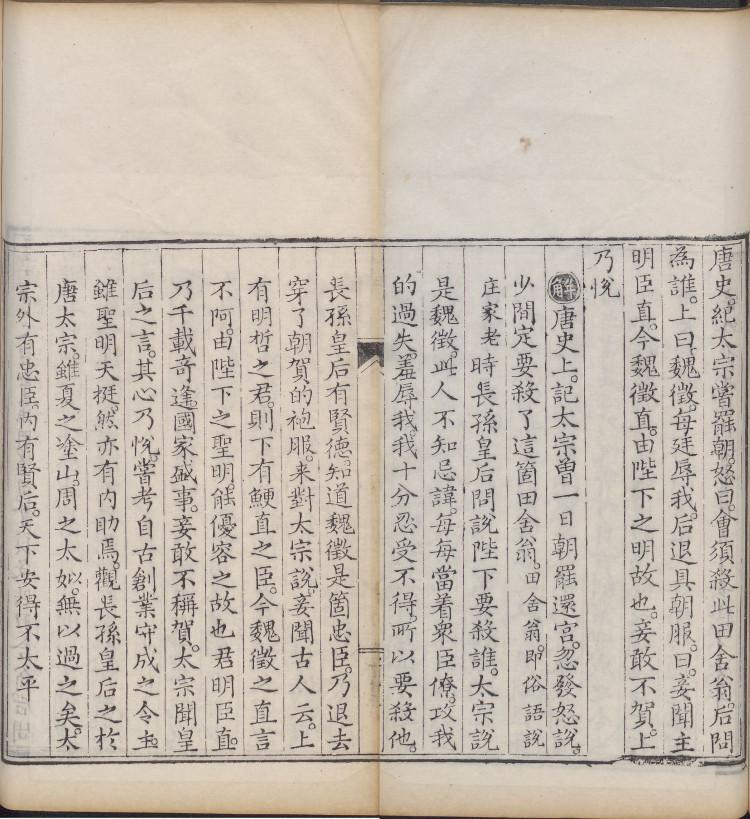 唐史。紀太宗嘗罷朝。怒曰。會須殺此田舍翁。后問
為誰。上曰。魏徵。每廷辱我。后退具朝服。曰。妾聞主
明臣直。今魏徵直。由陛下之明故也。妾敢不賀。上
乃悅
解唐史上。記太宗曾一日朝罷還宮。忽發怒說。
少間定要殺了這箇田舍翁。田舍翁。即俗語說
庄家老時長孫皇后問說陛下要殺誰。太宗說
是魏徵。此人不知忌諱。每每當着衆臣僚。攻我
的過失。羞辱我。我十分忍受不得。所以要殺他。
長孫皇后有賢德。知道魏徵是箇忠臣。乃退去
穿了朝賀的袍服。来對太宗說。妾聞古人云。上
有明哲之君。則下有鯁直之臣。今魏徵之直言
不阿。由陛下之聖明。能優容之故也君明臣直。
乃千載奇逢。國家盛事。妾敢不稱賀。太宗聞皇
后之言。其心乃悅。嘗考自古創業守成之令主。
雖聖明天挺。然亦有內助焉。觀長孫皇后之於
唐太宗。雖夏之塗山。周之太姒。無以過之矣。太
宗外有忠臣。內有賢后。天下安得不太平